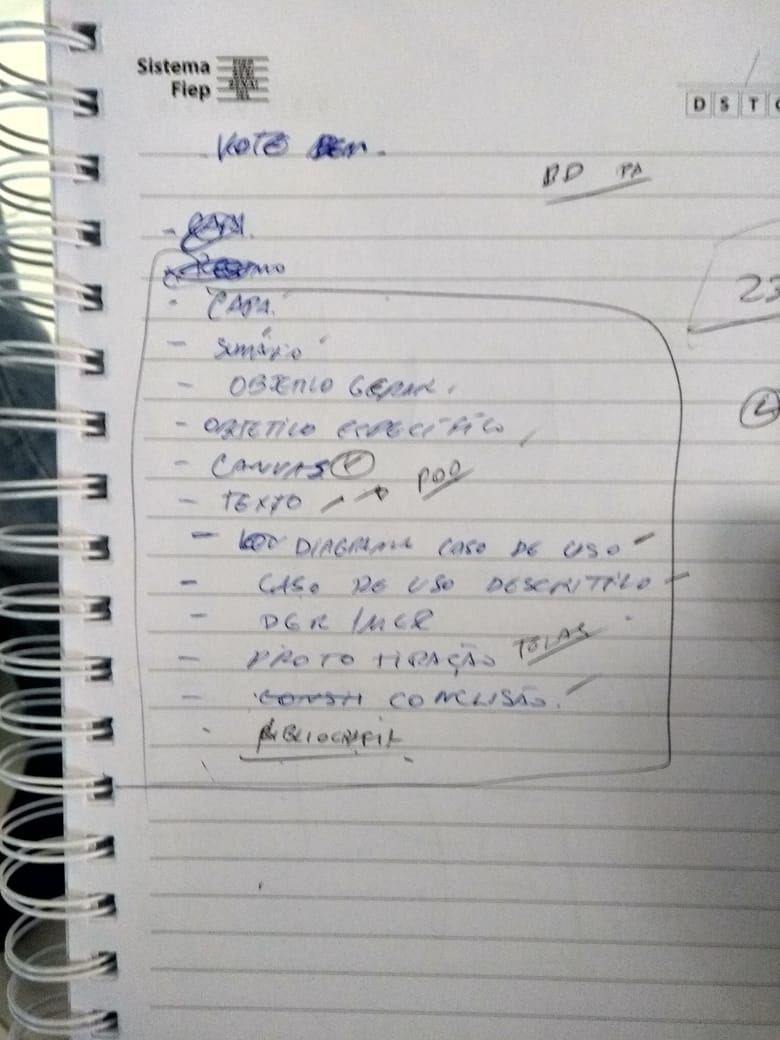 Sistema
Fiep
D S T
VOTE BEM.
BD PA
23
- CAPA.
- SUMÁRIO
- OBJETIVO GERAL.
- OBJETIVO ESPECÍFICO
- CANVAS
- TEXTO
- DIAGRAMA CASO DE USO
- CASO DE USO DESCRITIVO
- DER / MER
- PROTOTIPAÇÃO TELAS
- CONCLUSÃO.
BIBLIOGRAFIA